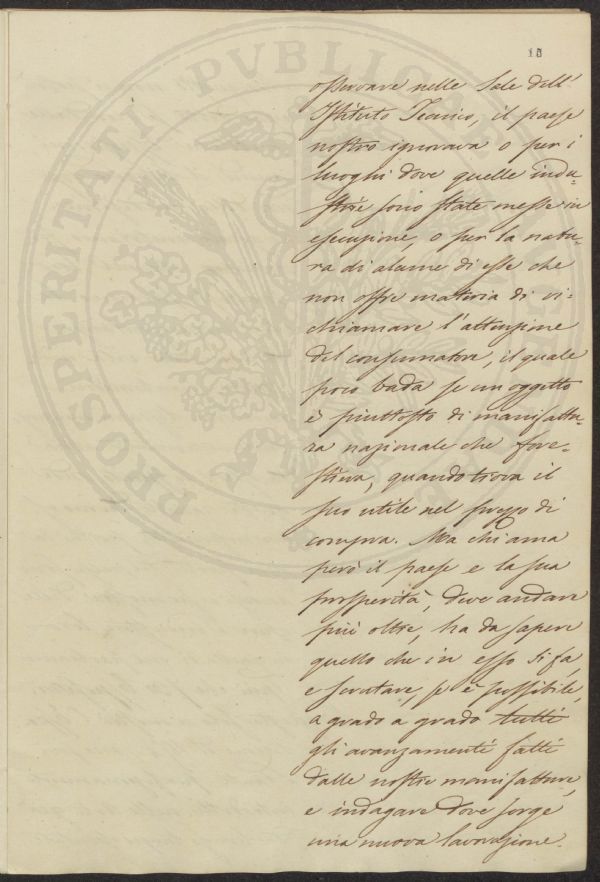 15
osservare nelle Sale dell'
Istituto Tecnico, il paese
nostro ignorava o per i
luoghi dove quelle indu-
strie sono state messe in
esecuzione, o per la natu-
ra di alcune di esse che
non offre materia di ri-
chiamare l'attenzione
del consumatore, il quale
poco bada se un oggetto
è piuttosto di manifattu-
ra nazionale che fore-
stiera, quando trova il
suo utile nel prezzo di
compra. Ma chi ama
però il paese e la sua
prosperità, deve andare
più oltre, ha da sapere
quello che in esso si fa,
e scrutare, se è possibile,
a grado a grado tutti
gli avanzamenti fatti
dalle nostre manifatture,
e indagare dove sorge
una nuova lavorazione.
PROSPERITATI PVBLICAE